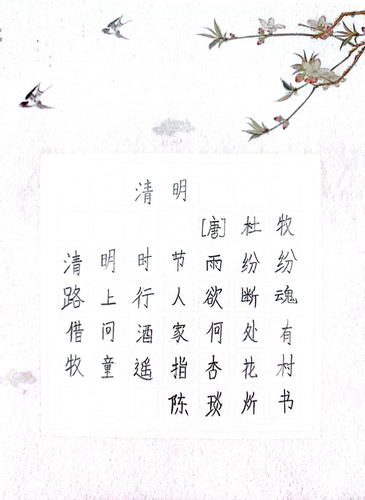 清明
[唐] 杜牧
清明时节雨纷纷
路上行人欲断魂
借问酒家何处有
牧童遥指杏花村
陈琰炘书